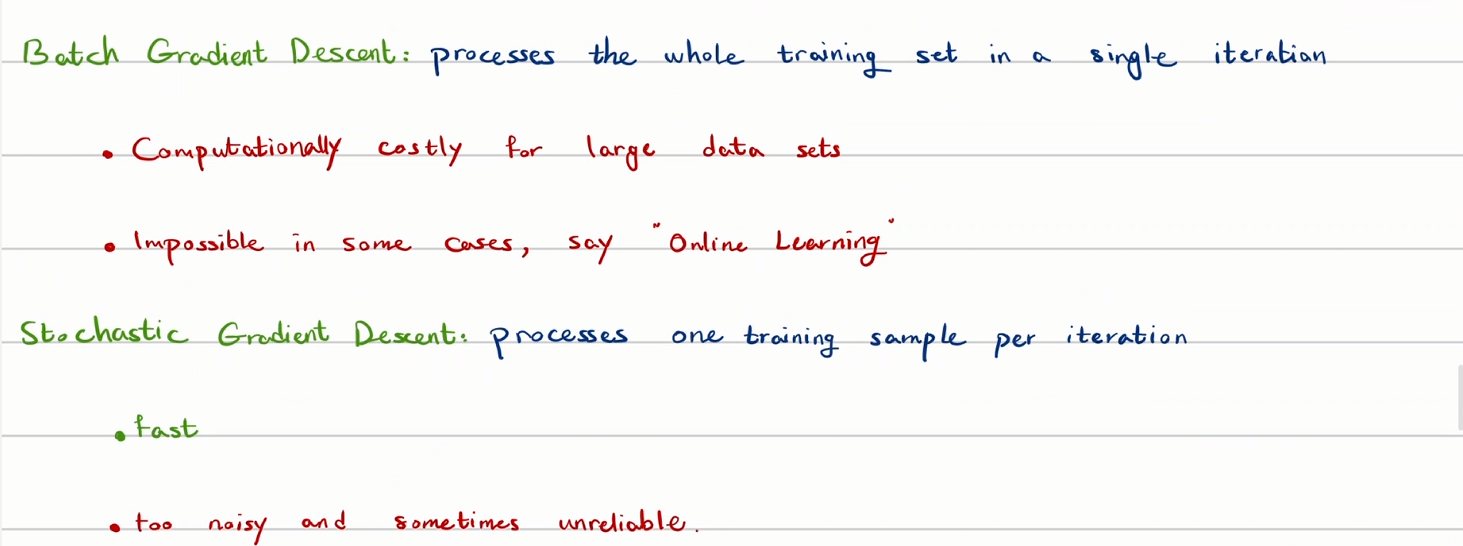 Batch Gradient Descent: processes the whole training set in a single iteration
• Computationally costly for large data sets
• Impossible in some cases, say "Online Learning"
Stochastic Gradient Descent: processes one training sample per iteration
• fast
• too noisy and sometimes unreliable.